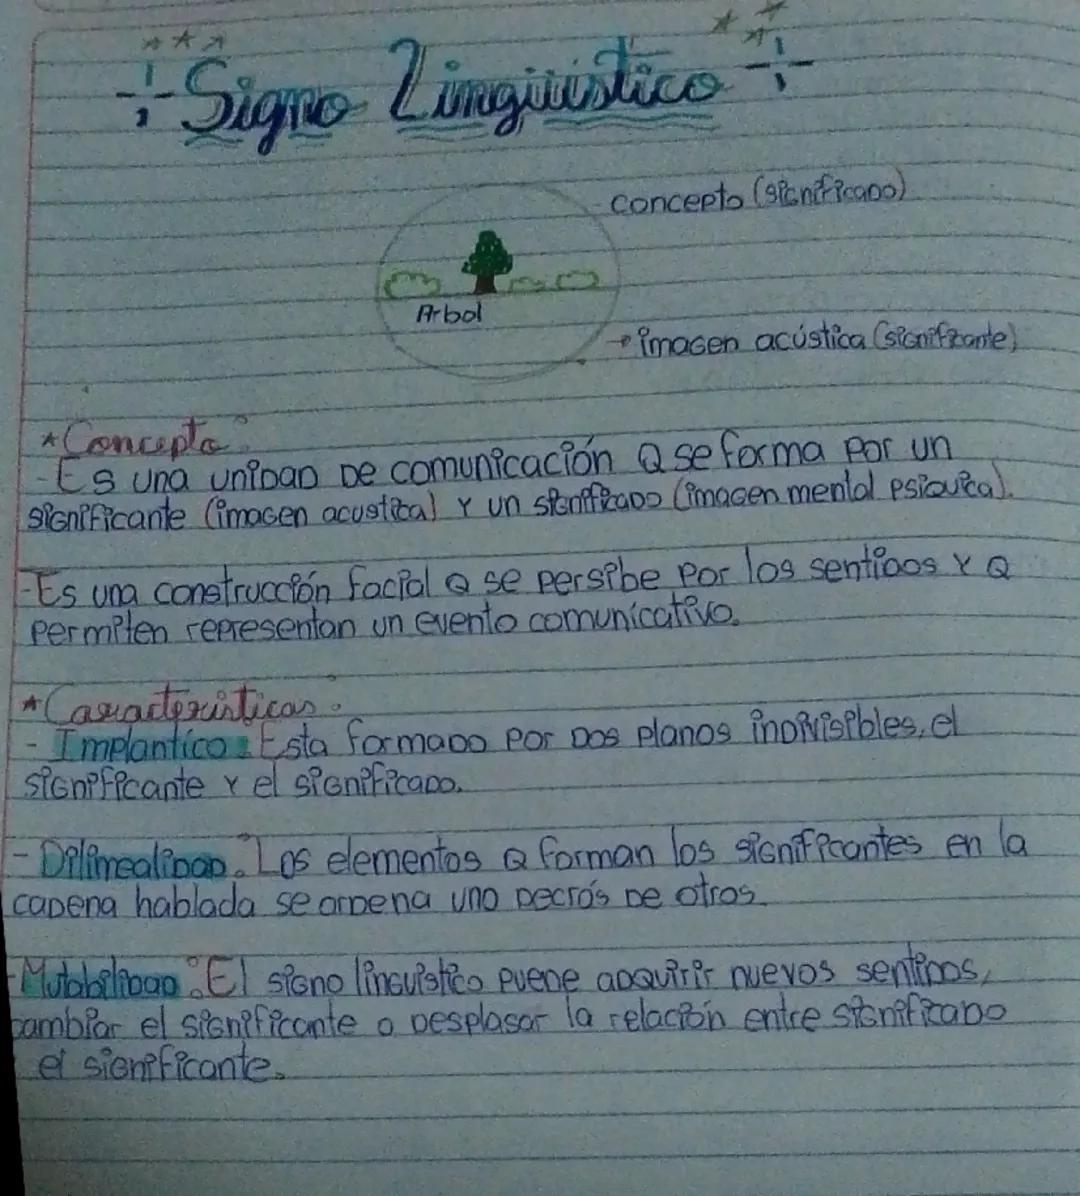 Signo Lingüístico
concepto (significado)
Arbol
imagen acústica (significante)
*Concepto:
- Es una unidad de comunicación Q se forma por un
significante (imagen acustica) y un significado (imagen mental psiquica).
- Es una construcción facial Q se persibe por los sentidos y Q
permiten representan un evento comunicativo.
*Características:
- Implantico: Esta formado por dos planos indivisibles, el
significante y el significado.
- Dilinealidad: Los elementos Q forman los significantes en la
cadena hablada se ordena uno decrás de otros.
- Mutabilidad: El signo linguistico puede adquirir nuevos sentidos,
cambiar el significante o desplasar la relación entre significado
el significante.